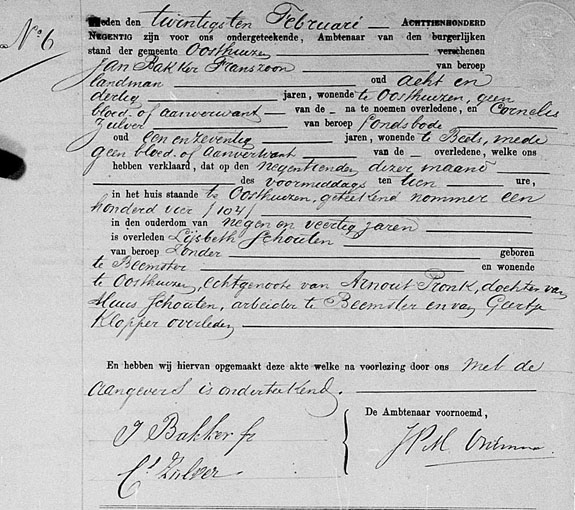 No 6
Heden den twintigsten Februari ACHTTIENHONDERD
NEGENTIG zijn voor ons ondergeteekende, Ambtenaar van den burgerlijken
stand der gemeente Oosthuizen verschenen
Jan Bakker Franszoon van beroep
landman oud acht en
dertig jaren, wonende te Oosthuizen, geen
bloed- of aanverwant van de na te noemen overledene, en Cornelis
Zulver van beroep Fondsbode
oud een en zeventig jaren, wonende te Beets, mede
geen bloed- of aanverwant van de overledene, welke ons
hebben verklaard, dat op den negentienden dezer maand
des voormiddags ten tien ure,
in het huis staande te Oosthuizen, geteekend nommer een
honderd vier /104/
in den ouderdom van negen en veertig jaren
is overleden Lijsbeth Schouten
van beroep zonder geboren
te Beemster en wonende
te Oosthuizen, echtgenoote van Arnout Pronk, dochter van
Schouten, arbeider te Beemster en van Geertje
Klopper overleden
En hebben wij hiervan opgemaakt deze akte welke na voorlezing door ons met de
aangevers is onderteekend.
De Ambtenaar voornoemd,
J Bakker fz
Cs Zulver